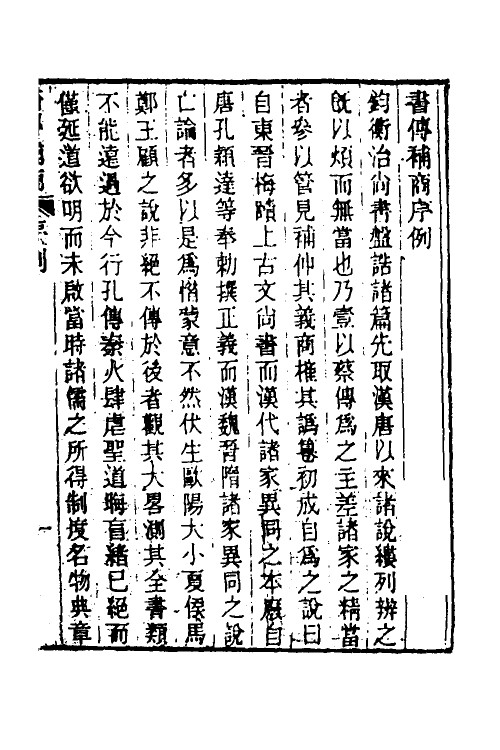 書傳補商序例
鈞衡治尚書盤誥諸篇先取漢唐以來諸說縷列辨之
旣以煩而無當也乃壹以蔡傳爲之主差諸家之精當
者參以管見補伸其義商榷其譌 初成自爲之說曰
自東晉梅賾上古文尚書而漢代諸家異同之本廢自
唐孔穎達等奉勅撰正義而漢魏晉隋諸家異同之說
亡論者多以是爲惜蒙意不然伏生歐陽大小夏侯馬
鄭王顧之說非絕不傳於後者觀其大畧測其全書類
不能遠過於今行孔傳秦火肆虐聖道晦盲緖已絕而
僅延道欲明而未啟當時諸儒之所得制度名物典章
序例
一